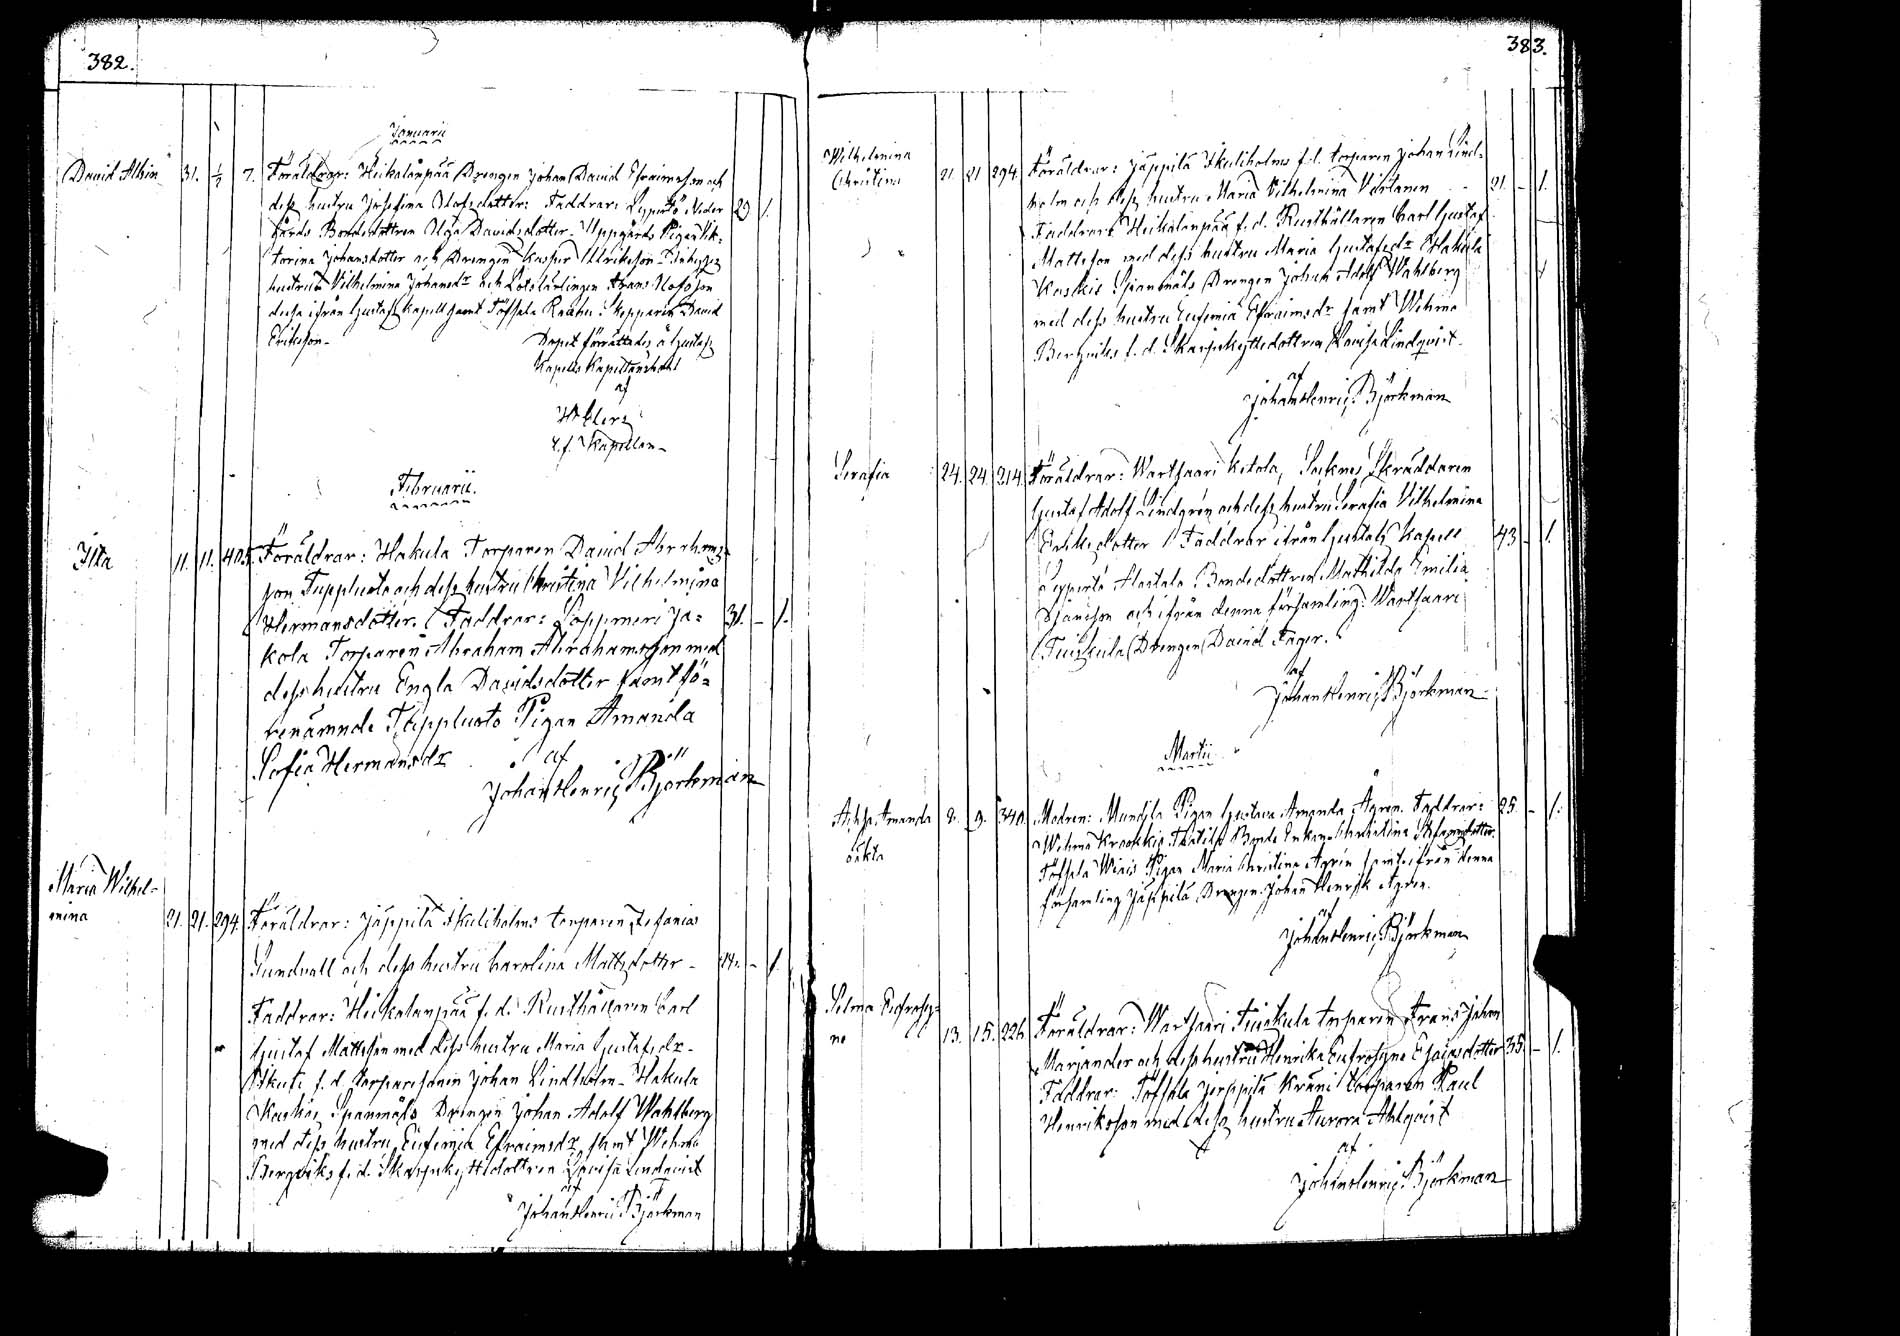 382.
Januarii
David Albin 31. 1/2 7. Föräldrar: Heikalanpää Drengen Johan David Efraimsson och
dess hustru Josefina Olofsdotter: Faddrar: Lypertö Neder 29 1.
gårds Bondedottren Olga Davidsdotter. Uppgårds Pigan Vik-
torina Johansdotter och Drengen Kasper Ulriksson
hustrun Vilhelmina Johansdr och Lotslärlingen Frans Olofsson
dessa ifrån Gustafs Kapell samt Töfsala Skepparen David
Eriksson. Dopet förrättades å Gustafs
Kapells Kapellansbohl
af
v.f. Kapellan
Februarii.
Ida 11. 11. 405. Föräldrar: Hakula Torparen David Abrahams-
son Tuppluoto och dess hustru Christina Vilhelmina
Hermansdotter. Faddrar: Loppmeri Ja- 31. – 1.
kola Torparen Abraham Abrahamsson med
dess hustru Engla Davidsdotter samt fö-
benämnde Tuppluoto Pigan Amanda
Sofia Hermansdr
af
Johan Henric Björkman
Maria Wilhel-
mina 21. 21. 294. Föräldrar: Jäppilä Skuliholms torparen Zefanias
Sundvall och dess hustru Carolina Mattsdotter – – 1.
Faddrar: Heikalanpää f. d. Rusthållaren Carl
Gustaf Mattsson med dess hustru Maria Gustafsdr.
f. d. torparesonen Johan Lindholm – Hakula
Kaskis Spannmåls Drengen Johan Adolf Wahlberg
med dess hustru Eufemia Efraimsdr samt Wehmo
Bergviks f. d. Skarpskyttedottren Lovisa Lindqvist
af
Johan Henric Björkman
383.
Wilhelmina
Christina 21. 21 294. Föräldrar: Jäppilä Skuliholms f. d. torparen Johan Lind-
holm och dess hustru Maria Vilhelmina Virtanen 21. – 1.
Faddrar: Heikalanpää f. d. Rusthållaren Carl Gustaf
Mattsson med dess hustru Maria Gustafsdr Hakula
Kaskis Spannmåls Drengen Johan Adolf Wahlberg
med dess hustru Eufemia Efraimsdr samt Wehmo
Bergviks f. d. Skarpskyttedottren Lovisa Lindqvist.
af
Johan Henric Björkman
Serafia 24. 24. 214. Föräldrar: Wartsaari Ketola, Socknes Skräddaren
Gustaf Adolf Lindgrén och dess hustru Serafia Vilhelmina
Eriksdotter Faddrar ifrån Gustafs Kapell 43 – 1.
Lypertö Alastalo Bondedottren Mathilda Emilia
och ifrån denna församling: Wartsaari
Tuiskula Drengen David Fager.
af
Johan Henric Björkman
Martii
Amanda 8. 9. 340. Modren: Mundila Pigan Gustava Amanda Ågren. Faddrar: 25. – 1.
oäkta Wehmo Bonde Enkan Christina
Töfsala Pigan Maria Christina Ågrén samt ifrån denna
församling Jäppilä Drengen Johan Henrik Ågren.
af
Johan Henric Björkman
Selma Eufrosy-
ne 13. 15. 226. Föräldrar: Wartsaari Tuiskula torparen Frans Johan
Marjander och dess hustru Henrika Eufrosyne Esaiasdotter 35. – 1.
Faddrar: Töfsala torparen Paul
Henriksson med dess hustru Aurora Ahlqvist
af
Johan Henric Björkman